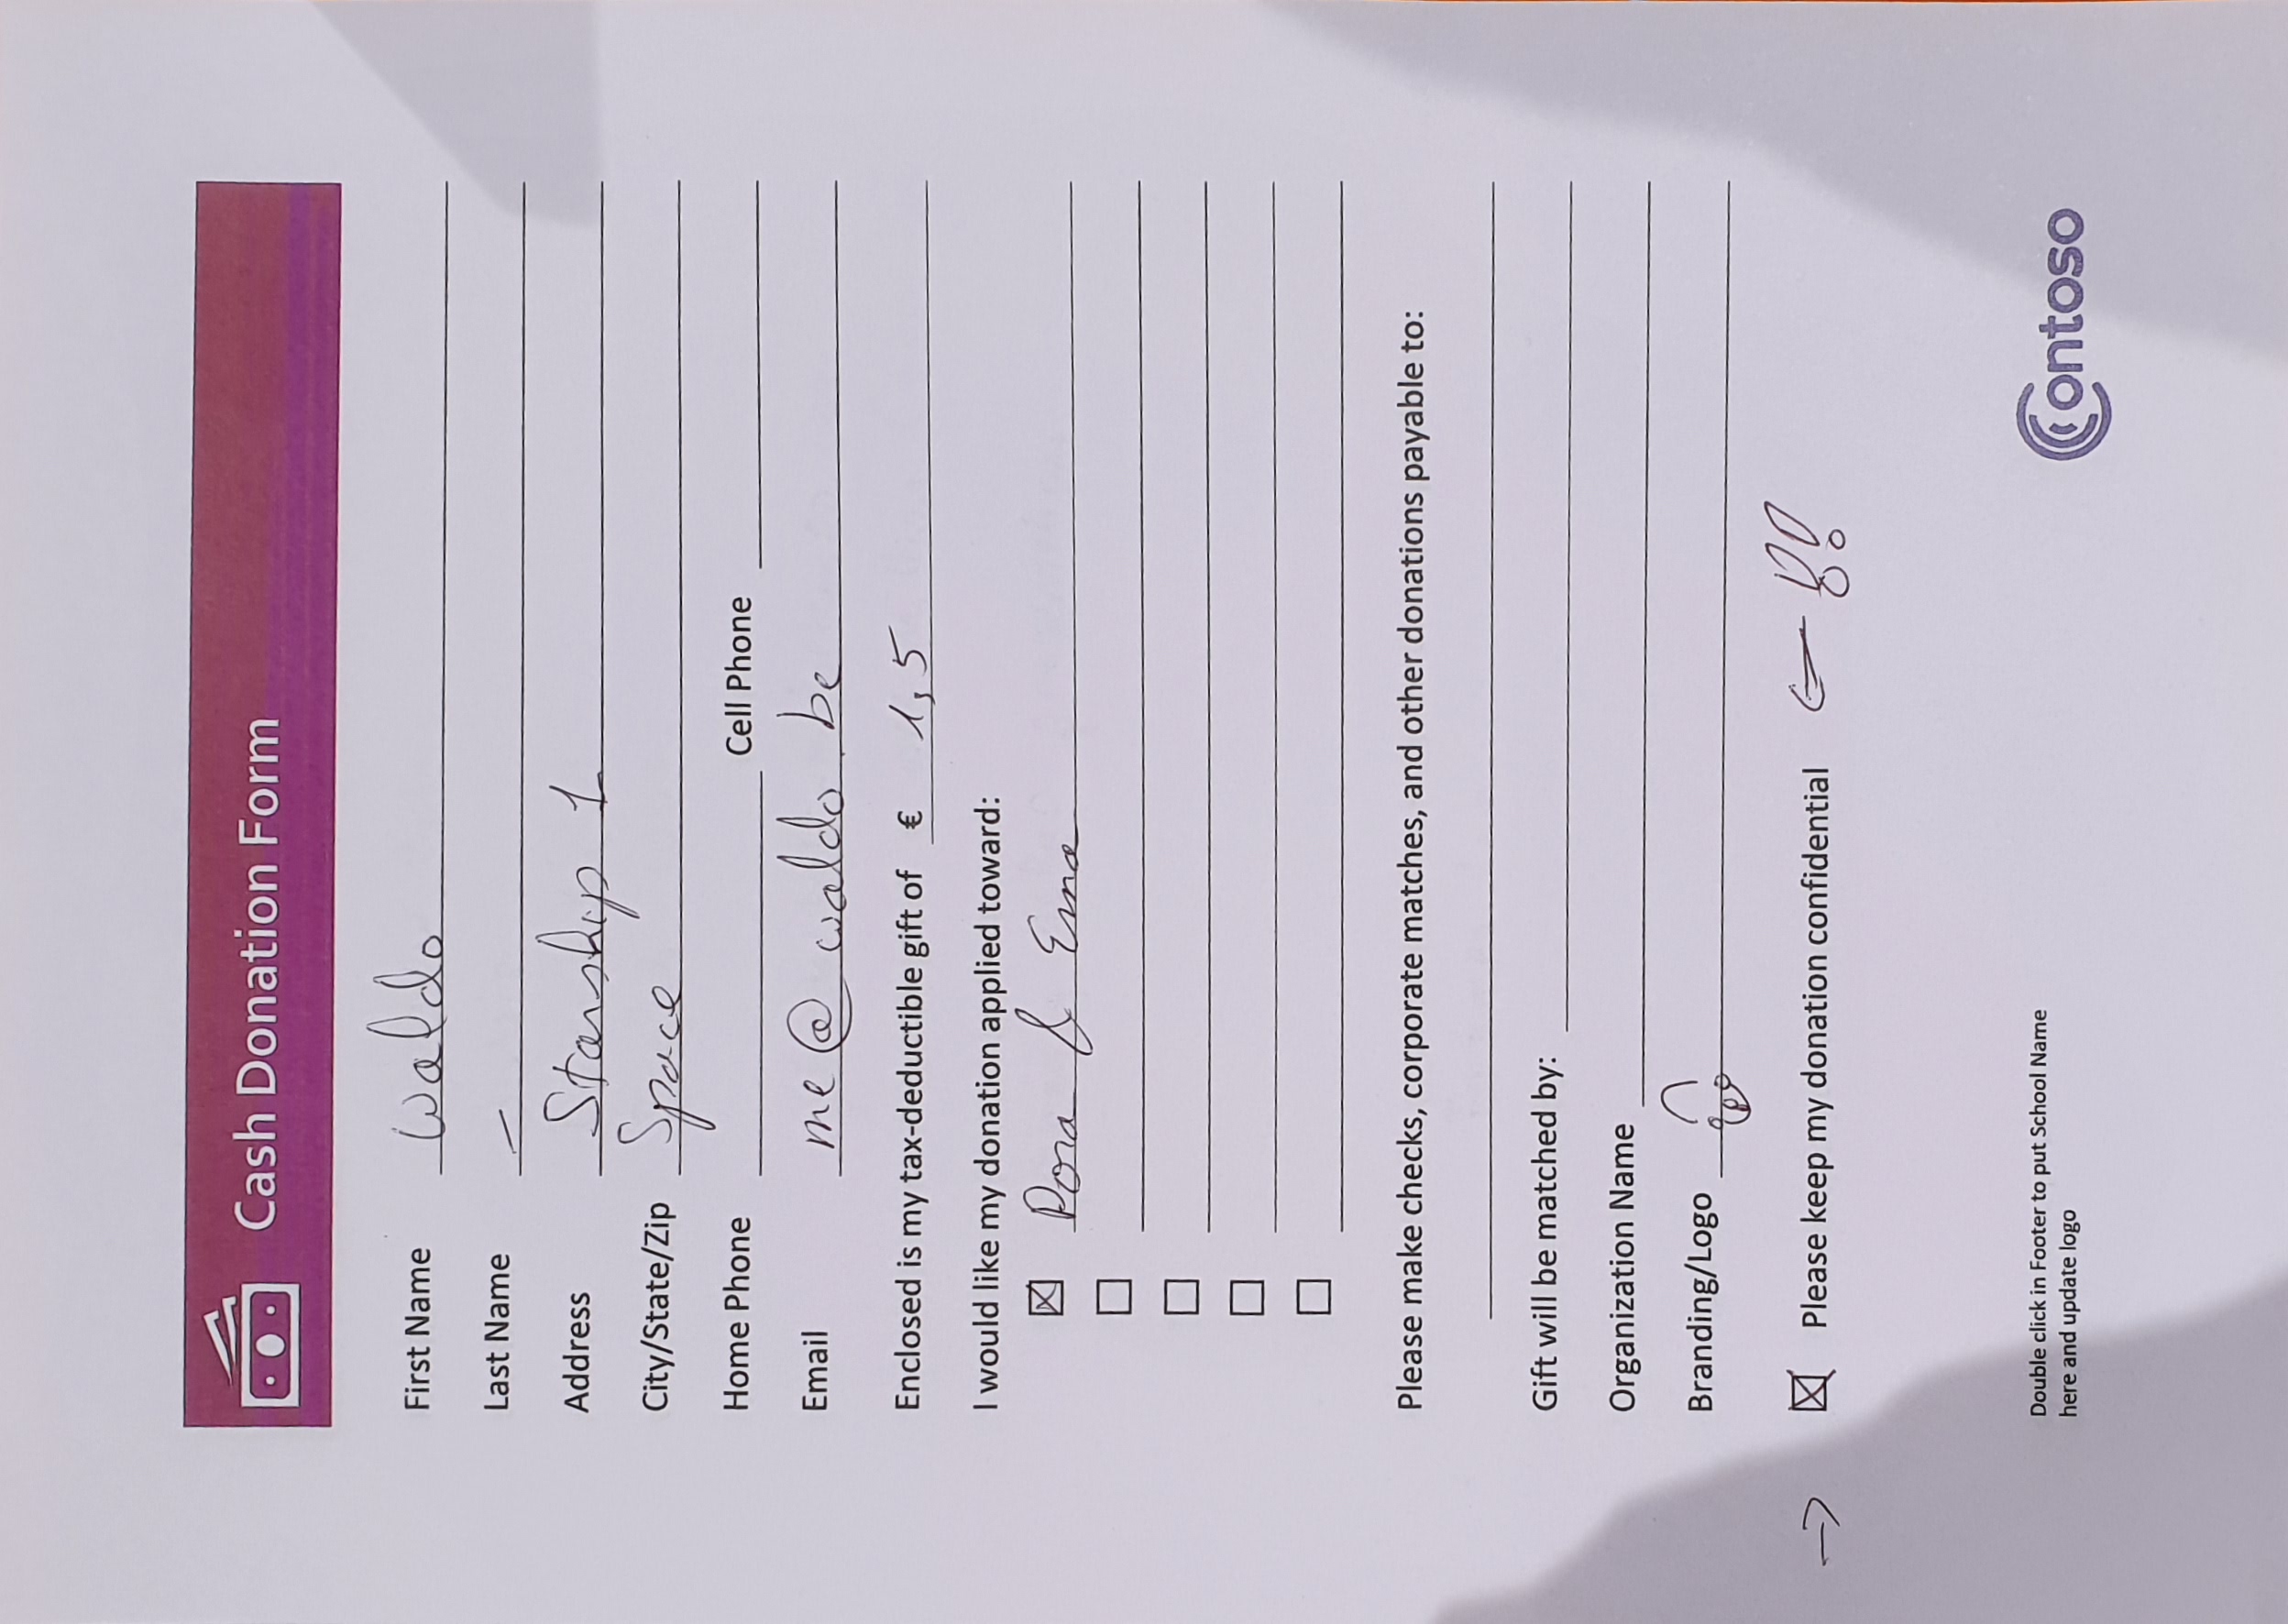 Cash Donation Form
First Name Waldo
Last Name —
Address Starship 1
City/State/Zip Space
Home Phone Cell Phone
Email me@waldo.be
Enclosed is my tax-deductible gift of € 1,5
I would like my donation applied toward:
☒ Dora & Ema
☐
☐
☐
☐
Please make checks, corporate matches, and other donations payable to:
Gift will be matched by:
Organization Name
Branding/Logo
→ ☒ Please keep my donation confidential ← !!
Double click in Footer to put School Name
here and update logo
Contoso